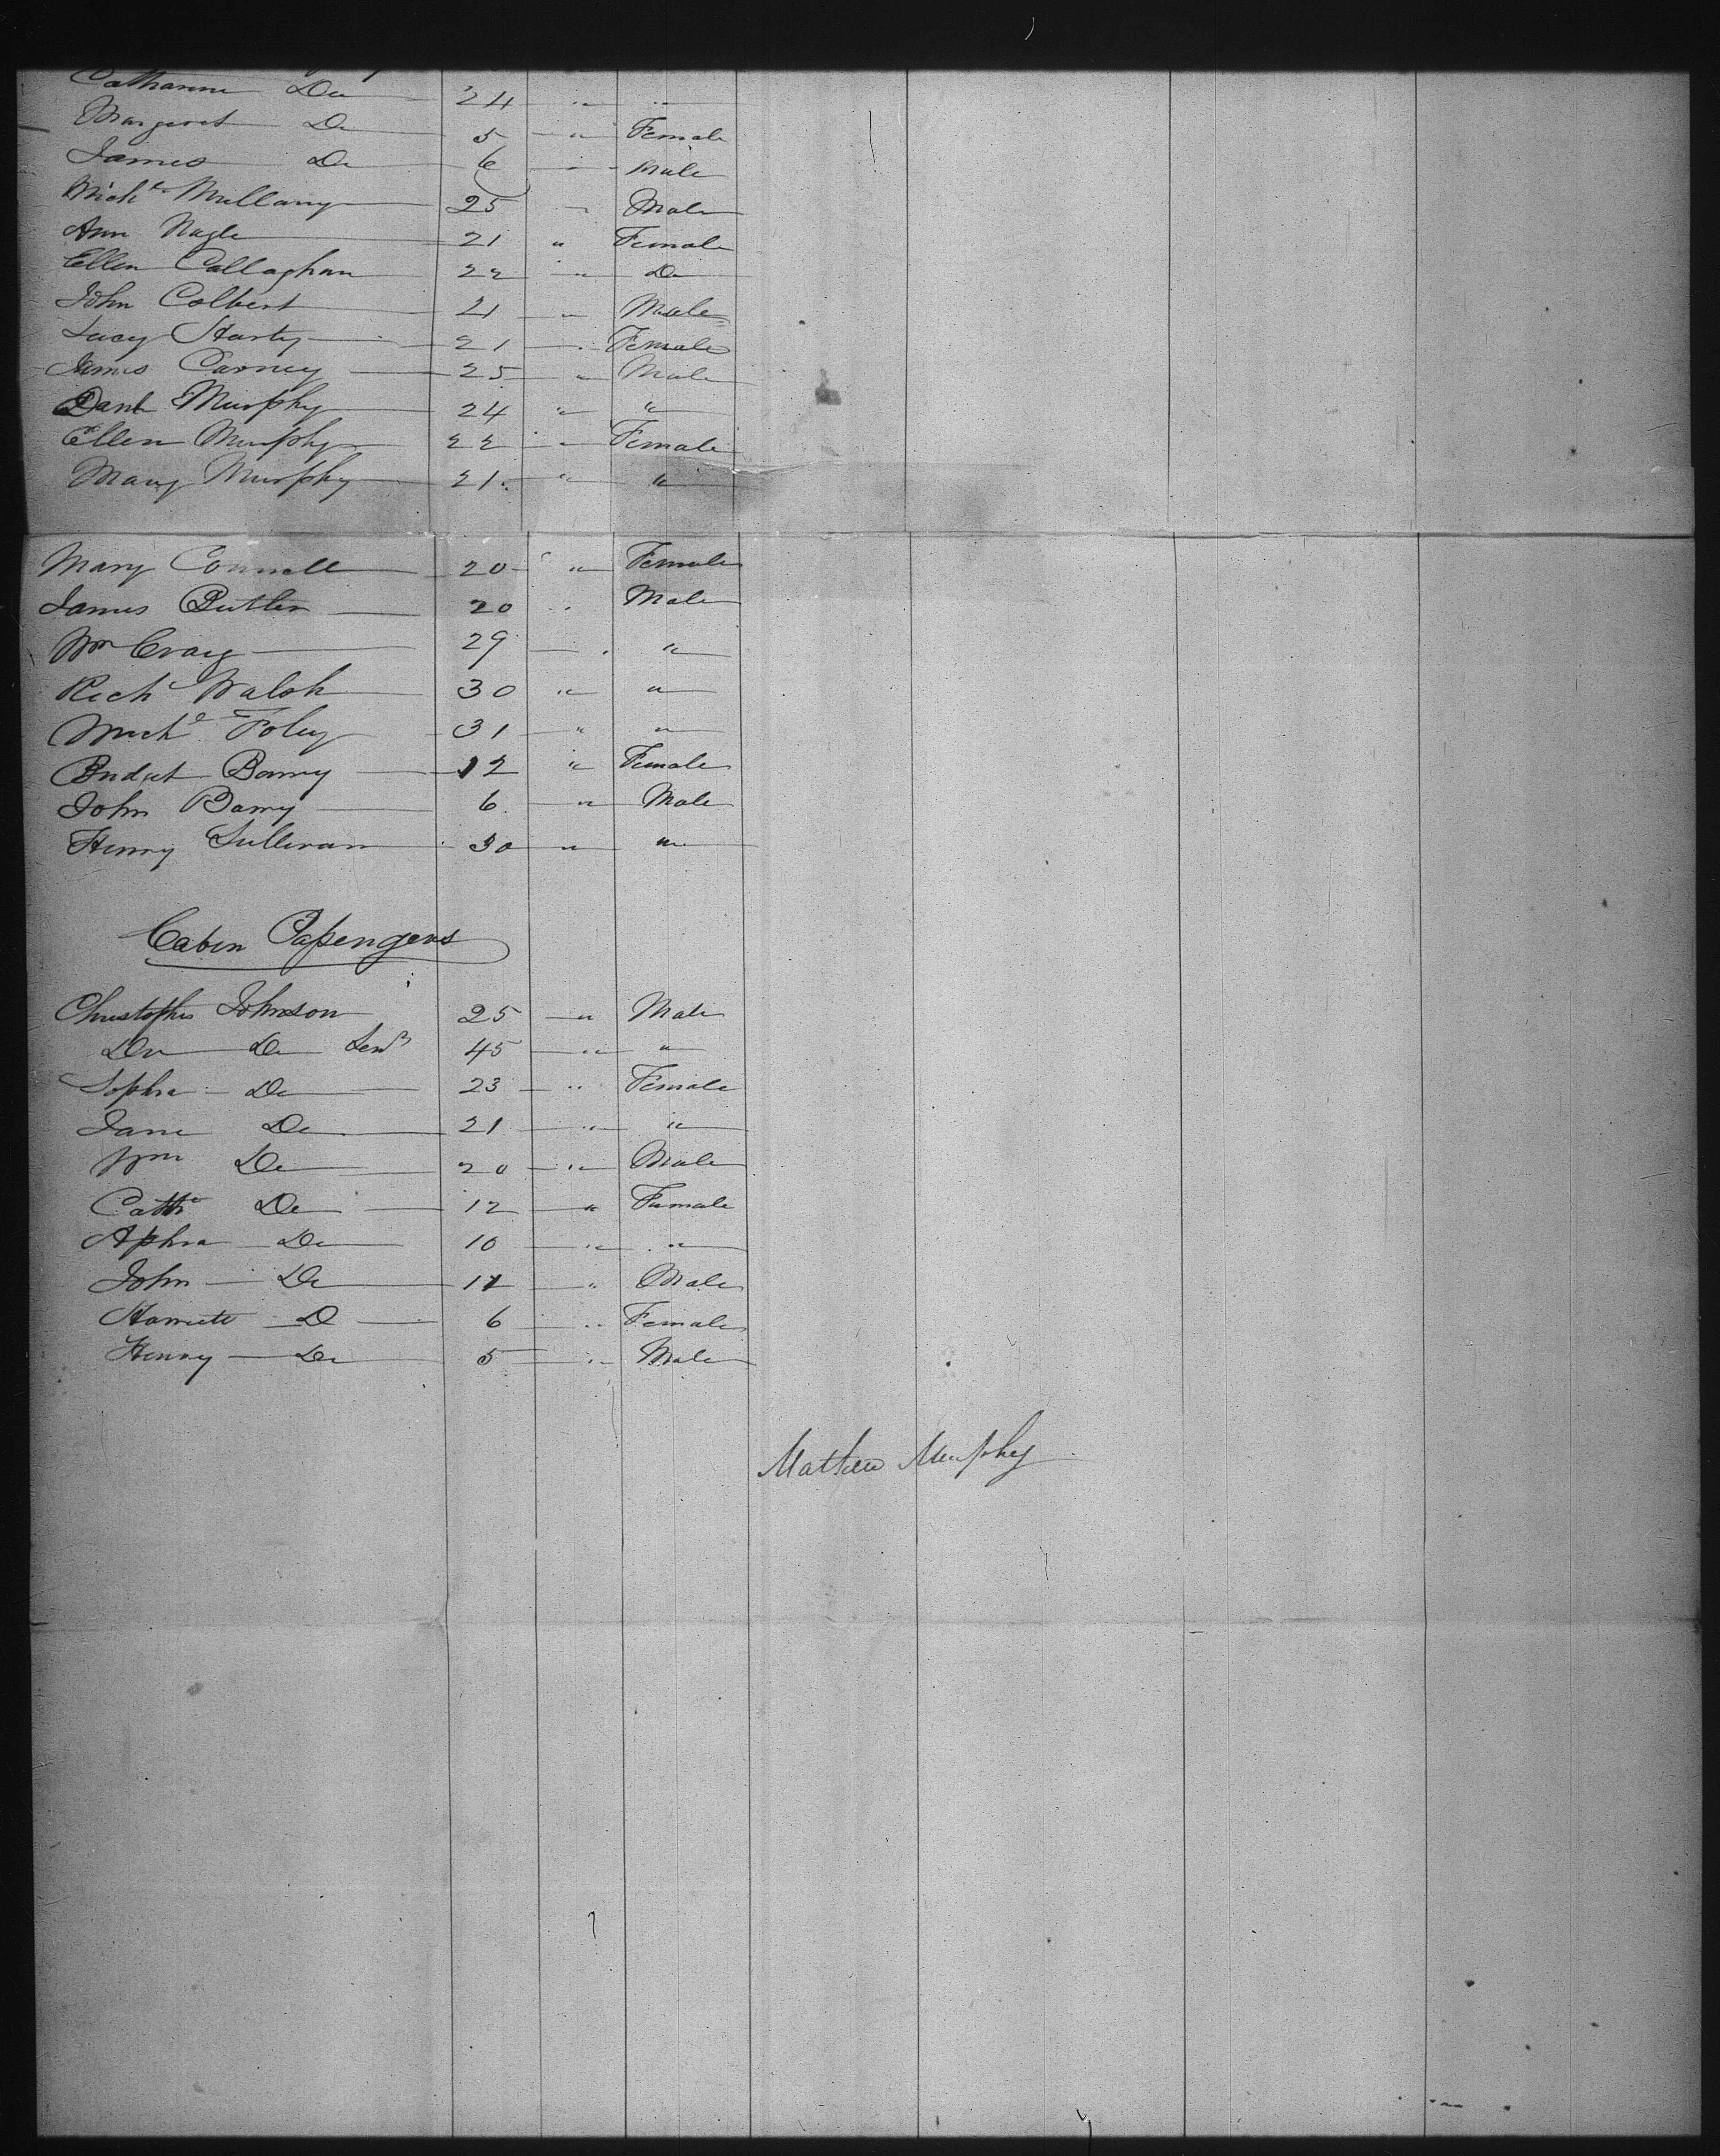 Catharine Do 24 " "
Margeret Do 5 " Female
James Do 6 " Male
Michl Mullany 25 " Male
Ann Nagle 21 " Female
Ellen Callaghan 22 " Do
John Colbert 21 " Male
Lucy Harty 21 " Female
James Carney 25 " Male
Danl Murphy 24 " "
Ellen Murphy 22 " Female
Mary Murphy 21 " "
Mary Connell 20 " Female
James Butler 20 " Male
Wm Craig 29 " "
Rich Walsh 30 " "
Michl Foley 31 " "
Bridget Barry 12 " Female
John Barry 6 " Male
Henry Sullivan 30 " "
Cabin Passengers
Christopher Johnson 25 " Male
Do Do Senr 45 " "
Sophia Do 23 " Female
Jane Do 21 " "
Wm Do 20 " Male
Cathe Do 12 " Female
Aphra Do 10 " "
John Do 11 " Male
Harriett Do 6 " Female
Henry Do 5 " Male
Mathew Murphy